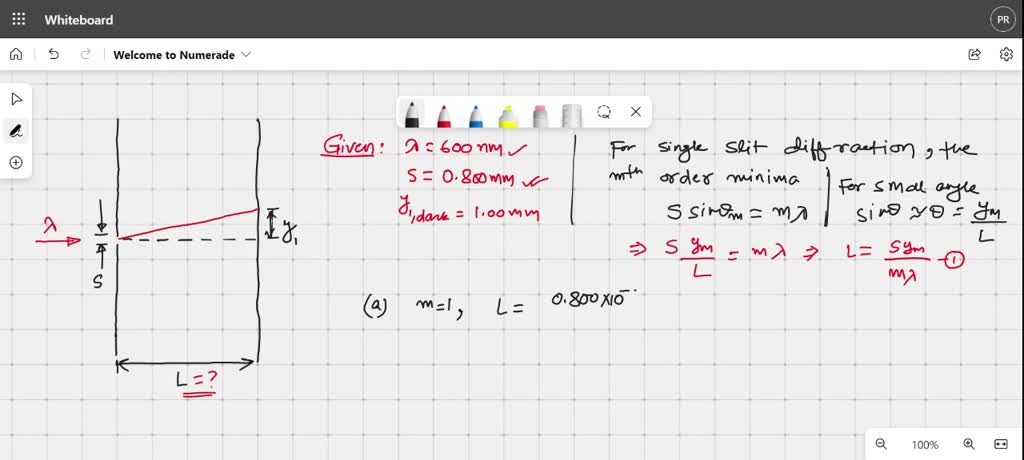 Whiteboard
PR
Welcome to Numerade
Given: λ = 600 nm ✓
S = 0.800 mm ✓
y1,dark = 1.00 mm
For single slit diffraction, the
mth order minima
S sinθm = mλ
For small angle
sinθ ≈ θ = ym/L
⇒ S ym/L = mλ ⇒ L = S ym/mλ — ①
λ
S
y1
L = ?
(a) m=1, L = 0.800×10⁻
100%